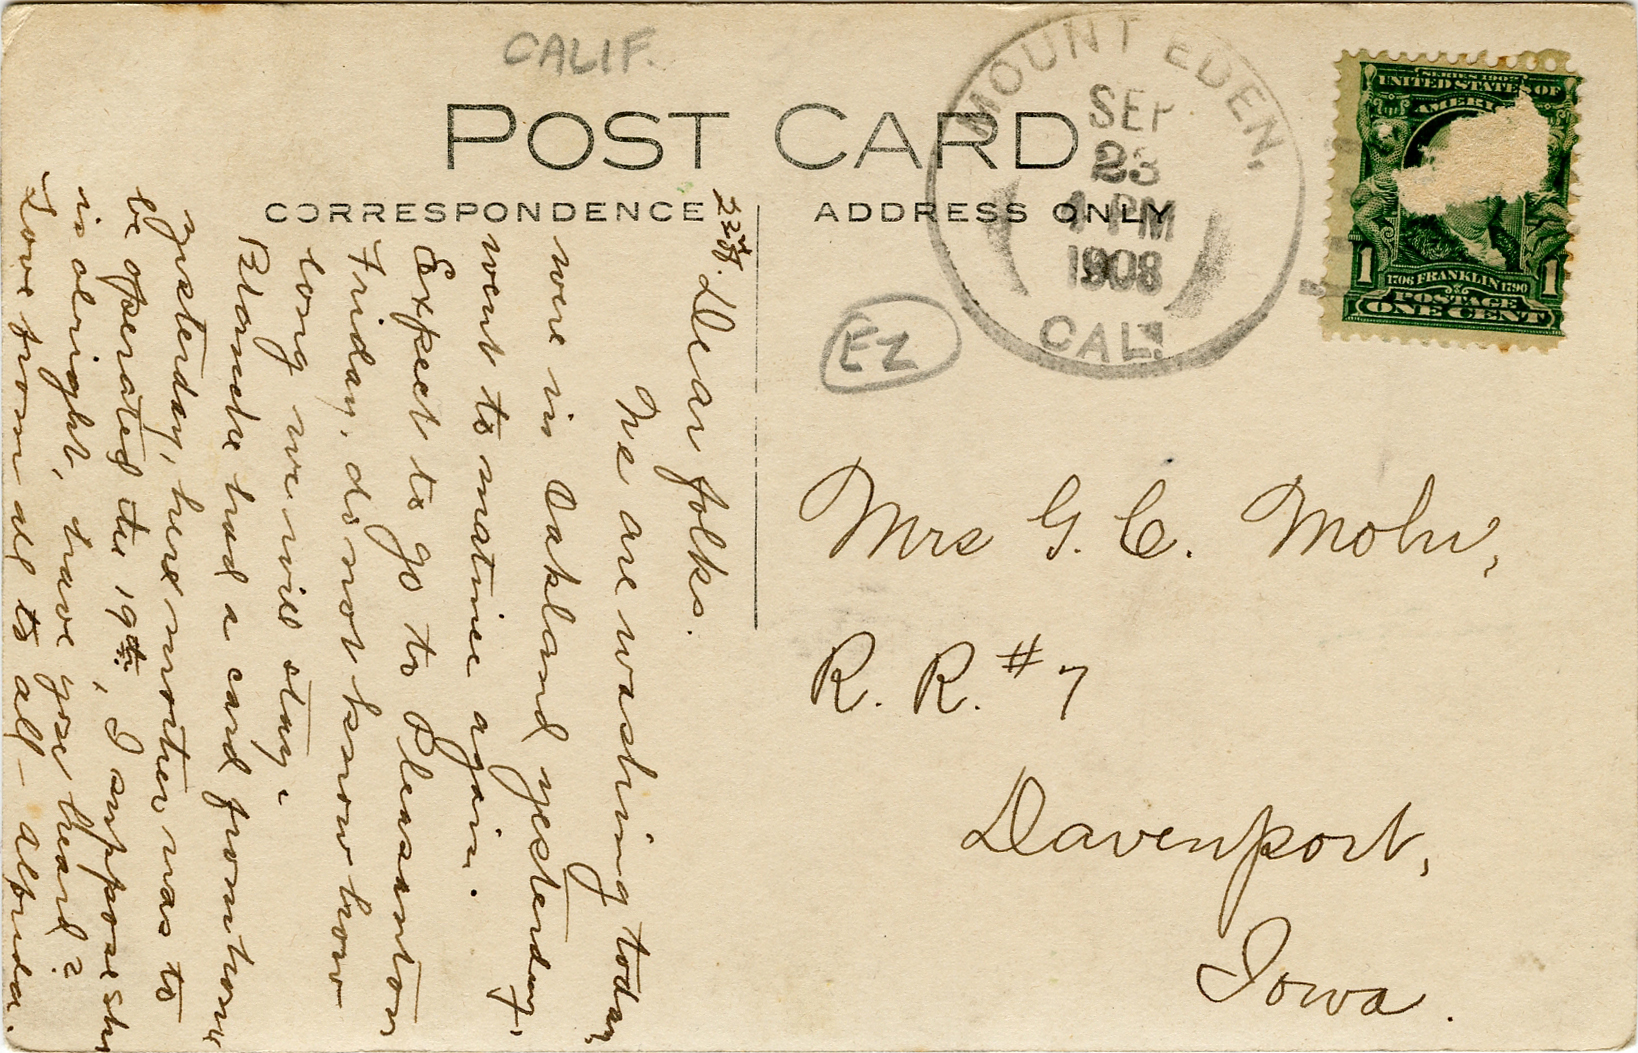 CALIF.
POST CARD
CORRESPONDENCE
ADDRESS ONLY
MOUNT EDEN,
SEP
23
1 PM
1908
CAL.
SERIES 1902
UNITED STATES OF
AMERICA
1 1706 FRANKLIN 1790 1
POSTAGE
ONE CENT
EZ
Mrs G. C. Mohr,
R. R. # 7
Davenport,
Iowa.
22nd.
Dear folks.
We are washing today,
were in Oakland yesterday,
went to matinee again.
Expect to go to Pleasanton
Friday, do not know how
long we will stay.
Blanche had a card from home
yesterday, her mother was to
be operated the 19th, I suppose she
is alright, have you heard?
Love from all to all - Alfrida.